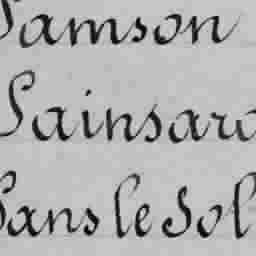 Samson
Sainsaro
Sans le Sol